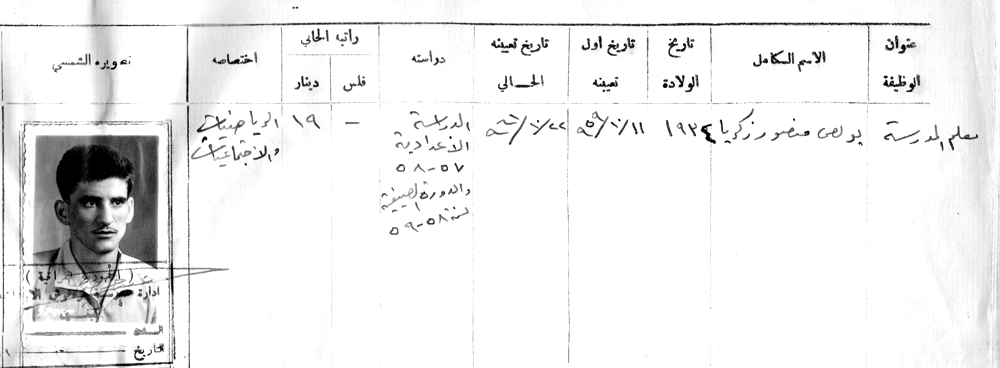 عنوان الوظيفة
الاسم الكامل
تاريخ الولادة
تاريخ اول تعيينه
تاريخ تعيينه الحالي
دراسته
راتبه الحالي
فلس
دينار
اختصاصه
تصويره الشمسي
معلم المدرسة
بولص منصور زكريا
١٩٣٤
١١/١٠/٥٩
٢٢/١٠/
الدراسة
الاعدادية
٥٧-٥٨
والدورة الصيفية
لسنة ٥٨-٥٩
–
١٩
الرياضيات
والاجتماعيات
ادارة
التاريخ